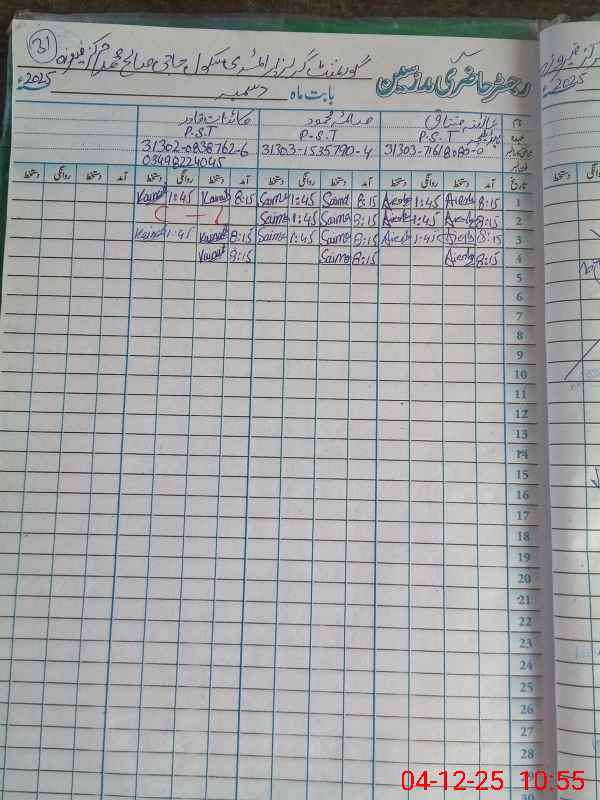 31
گورنمنٹ گرلز پرائمری سکول حاجی صالح محمد مرکز فیروزہ
رجسٹر حاضری مدرسین
بابت ماہ دسمبر 2025ء
نام عائشہ مشتاق صائمہ محمود کائنات قادر
عہدہ P.S.T P.S.T P.S.T
31303-1535790-4 31302-0838762-6
03498224045
تاریخ آمد دستخط روانگی دستخط آمد دستخط روانگی دستخط آمد دستخط روانگی دستخط آمد دستخط روانگی دستخط
1 8:15 Aiesha 1:45 Aiesha 8:15 Saima 1:45 Saima 8:15 Kainat 1:45 Kainat
2 8:15 Aiesha 1:45 Aiesha 8:15 Saima 1:45 Saima
3 8:15 Aiesha 1:45 Aiesha 8:15 Saima 1:45 Saima 8:15 Kainat 1:45 Kainat
4 8:15 Aiesha 8:15 Saima 8:15 Kainat
5
6
7
8
9
10
11
12
13
14
15
16
17
18
19
20
21
22
23
24
25
26
27
28
29
30
04-12-25 10:55